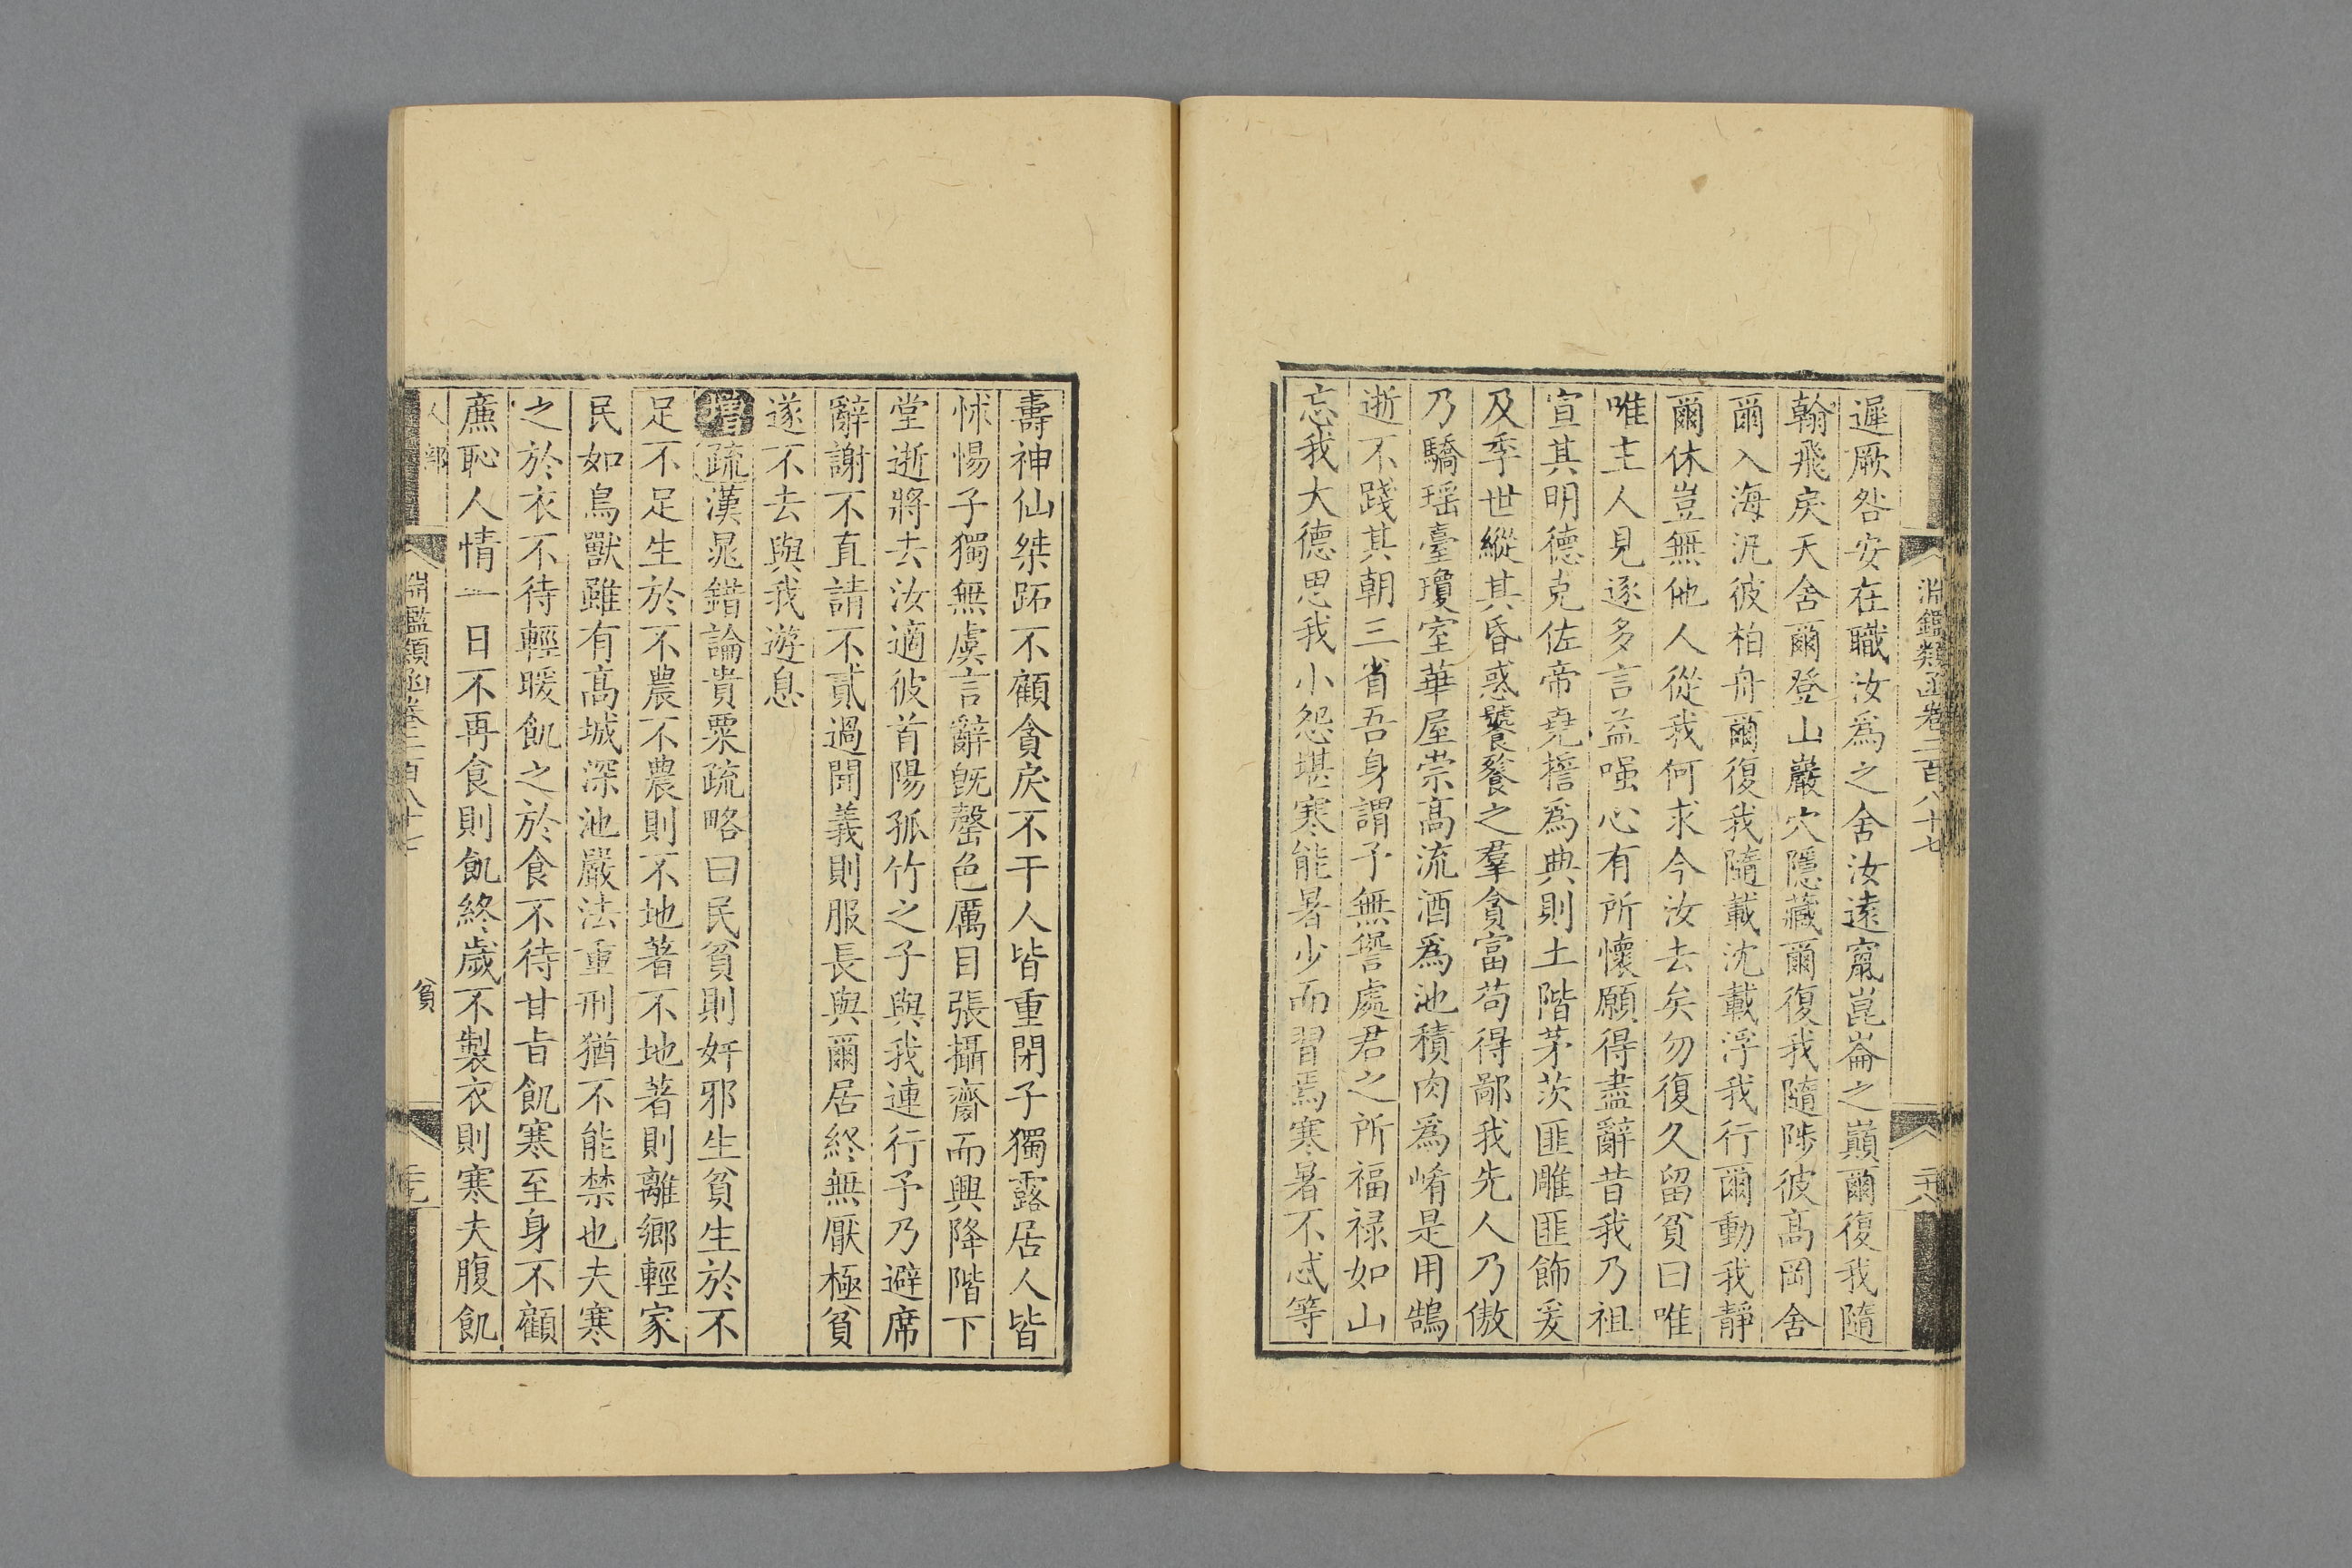 淵鑑類函卷二百八十七
二十八
遲厥咎安在職汝爲之舍汝遠竄崑崙之巔爾復我隨
翰飛戾天舍爾登山巖穴隱藏爾復我隨陟彼高岡舍
爾入海汎彼柏舟爾復我隨載沈載浮我行爾動我靜
爾休豈無他人從我何求今汝去矣勿復久留貧曰唯
唯主人見逐多言益嗤心有所懷願得盡辭昔我乃祖
宣其明德克佐帝堯誓爲典則土階茅茨匪雕匪飾爰
及季世縱其昏惑饕餮之羣貪富苟得鄙我先人乃傲
乃驕瑤臺瓊室華屋崇高流酒爲池積肉爲崤是用鵠
逝不踐其朝三省吾身謂予無諐處君之所福祿如山
忘我大德思我小怨堪寒能暑少而習焉寒暑不忒等
壽神仙桀跖不顧貪戾不干人皆重閉子獨露居人皆
怵惕子獨無虞言辭旣罄色厲目張攝齋而興降階下
堂逝將去汝適彼首陽孤竹之子與我連行予乃避席
辭謝不直請不貳過聞義則服長與爾居終無厭極貧
遂不去與我遊息
增疏漢晁錯論貴粟疏略曰民貧則奸邪生貧生於不
足不足生於不農不農則不地著不地著則離鄉輕家
民如鳥獸雖有高城深池嚴法重刑猶不能禁也夫寒
之於衣不待輕暖飢之於食不待甘旨飢寒至身不顧
廉恥人情一日不再食則飢終歲不製衣則寒夫腹飢
人部
淵鑑類函卷二百八十七
貧